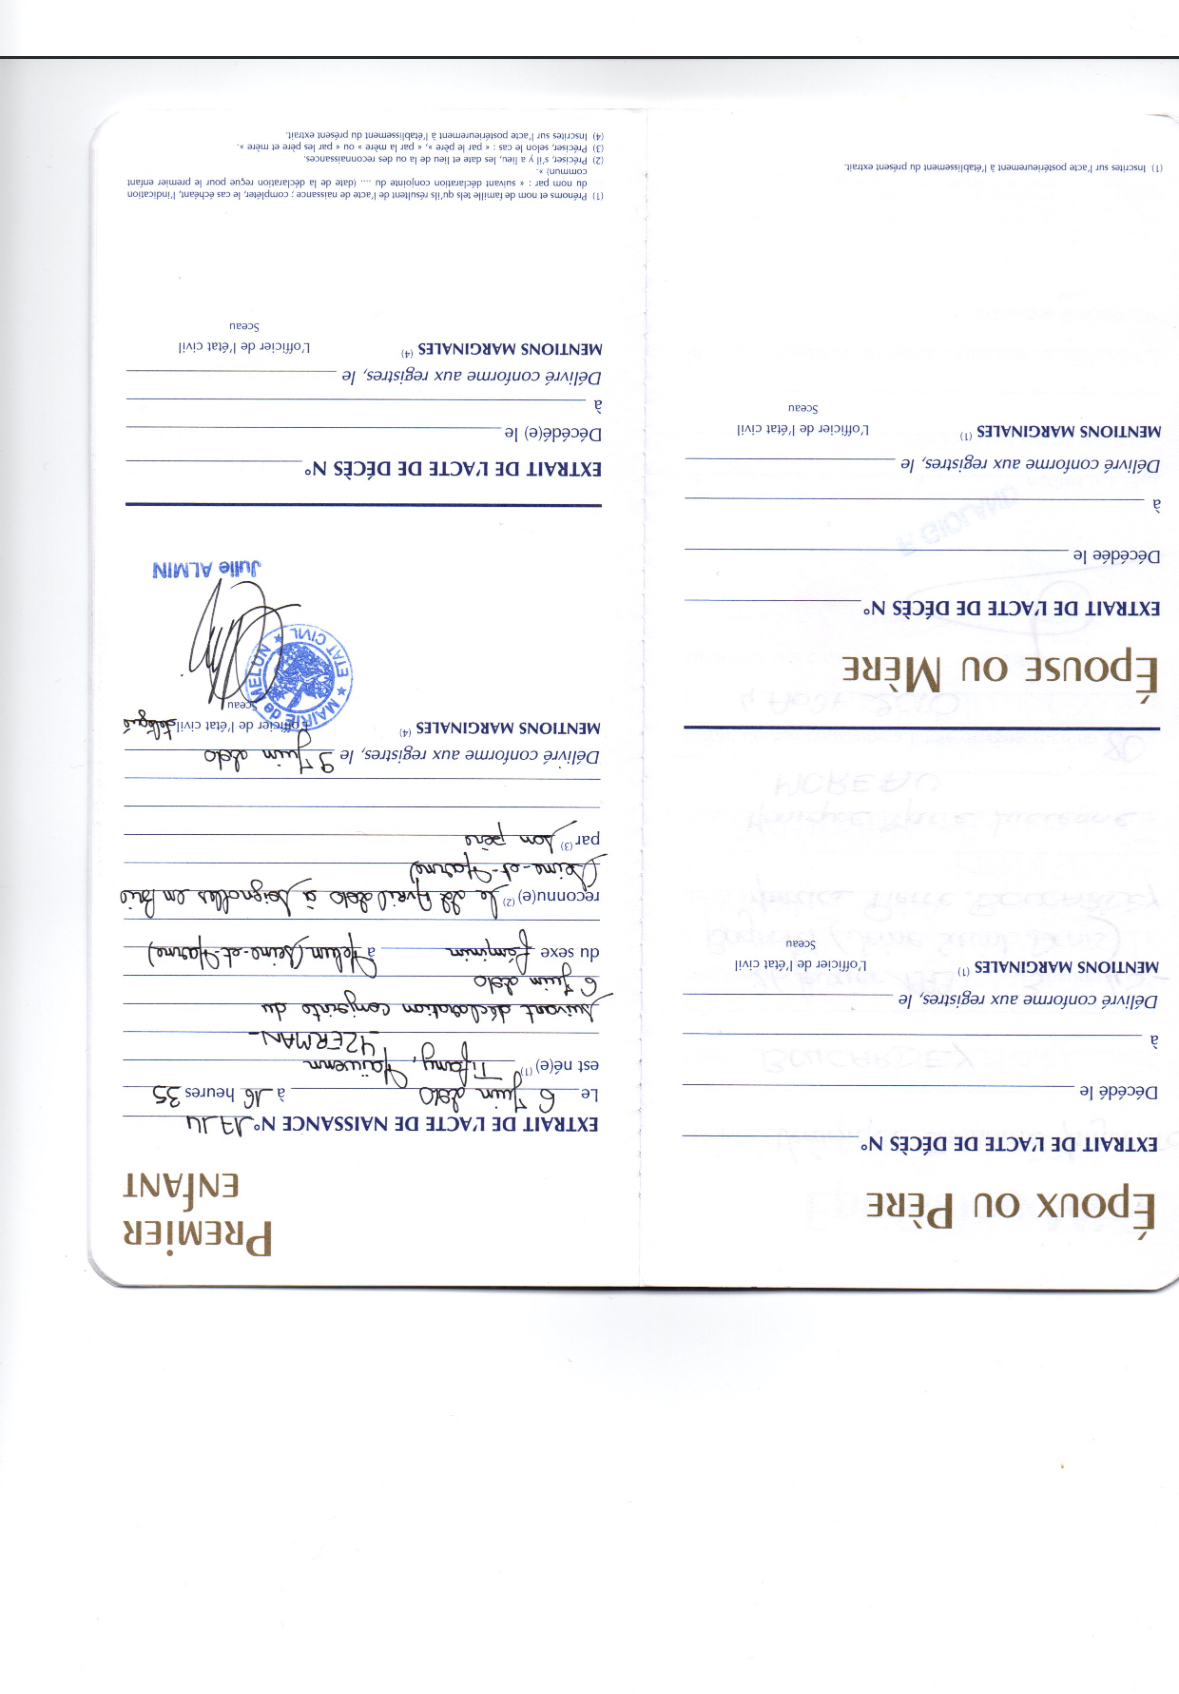 ÉPOUX OU PÈRE
EXTRAIT DE L'ACTE DE DÉCÈS N°
Décédé le
à
Délivré conforme aux registres, le
MENTIONS MARGINALES (1)
L'officier de l'état civil
Sceau
ÉPOUSE OU MÈRE
EXTRAIT DE L'ACTE DE DÉCÈS N°
Décédée le
à
Délivré conforme aux registres, le
MENTIONS MARGINALES (1)
L'officier de l'état civil
Sceau
(1) Inscrites sur l'acte postérieurement à l'établissement du présent extrait.
PREMIER
ENFANT
EXTRAIT DE L'ACTE DE NAISSANCE N° 1714
Le 6 Juin 2010 à 16 heures 35
est né(e) (1) Tifany,
-YZERMAN-
suivant déclaration conjointe du
6 Juin 2010
du sexe féminin à Melun (Seine-et-Marne)
reconnu(e) (2) le 22 Avril 2010 à Soignolles en Brie
(Seine-et-Marne)
par (3) son père
Délivré conforme aux registres, le 9 Juin 2010
MENTIONS MARGINALES (4)
L'officier de l'état civil délégué
Sceau
MAIRIE de MELUN
★ ETAT CIVIL ★
Julie ALMIN
EXTRAIT DE L'ACTE DE DÉCÈS N°
Décédé(e) le
à
Délivré conforme aux registres, le
MENTIONS MARGINALES (4)
L'officier de l'état civil
Sceau
(1) Prénoms et nom de famille tels qu'ils résultent de l'acte de naissance ; compléter, le cas échéant, l'indication
du nom par : « suivant déclaration conjointe du .... (date de la déclaration reçue pour le premier enfant
commun) ».
(2) Préciser, s'il y a lieu, les date et lieu de la ou des reconnaissances.
(3) Préciser, selon le cas : « par le père », « par la mère » ou « par les père et mère ».
(4) Inscrites sur l'acte postérieurement à l'établissement du présent extrait.